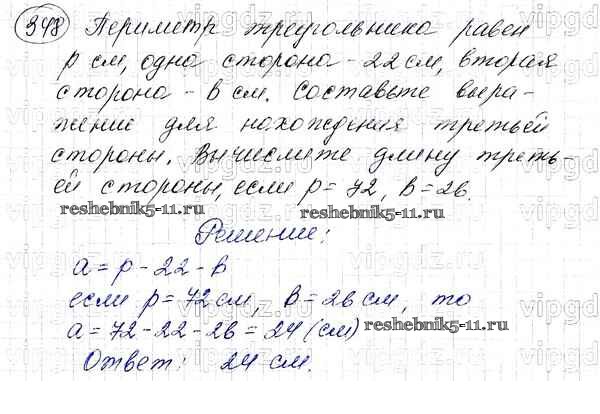 348 Периметр треугольника равен
p см, одна сторона - 22 см, вторая
сторона - b см. Составьте выра-
жение для нахождения третьей
стороны. Вычислите длину треть-
ей стороны, если p = 72, b = 26.
reshebnik5-11.ru reshebnik5-11.ru
Решение:
a = p - 22 - b
если p = 72 см, b = 26 см, то
a = 72 - 22 - 26 = 24 (см)
reshebnik5-11.ru
Ответ: 24 см.
vipgdz.ru